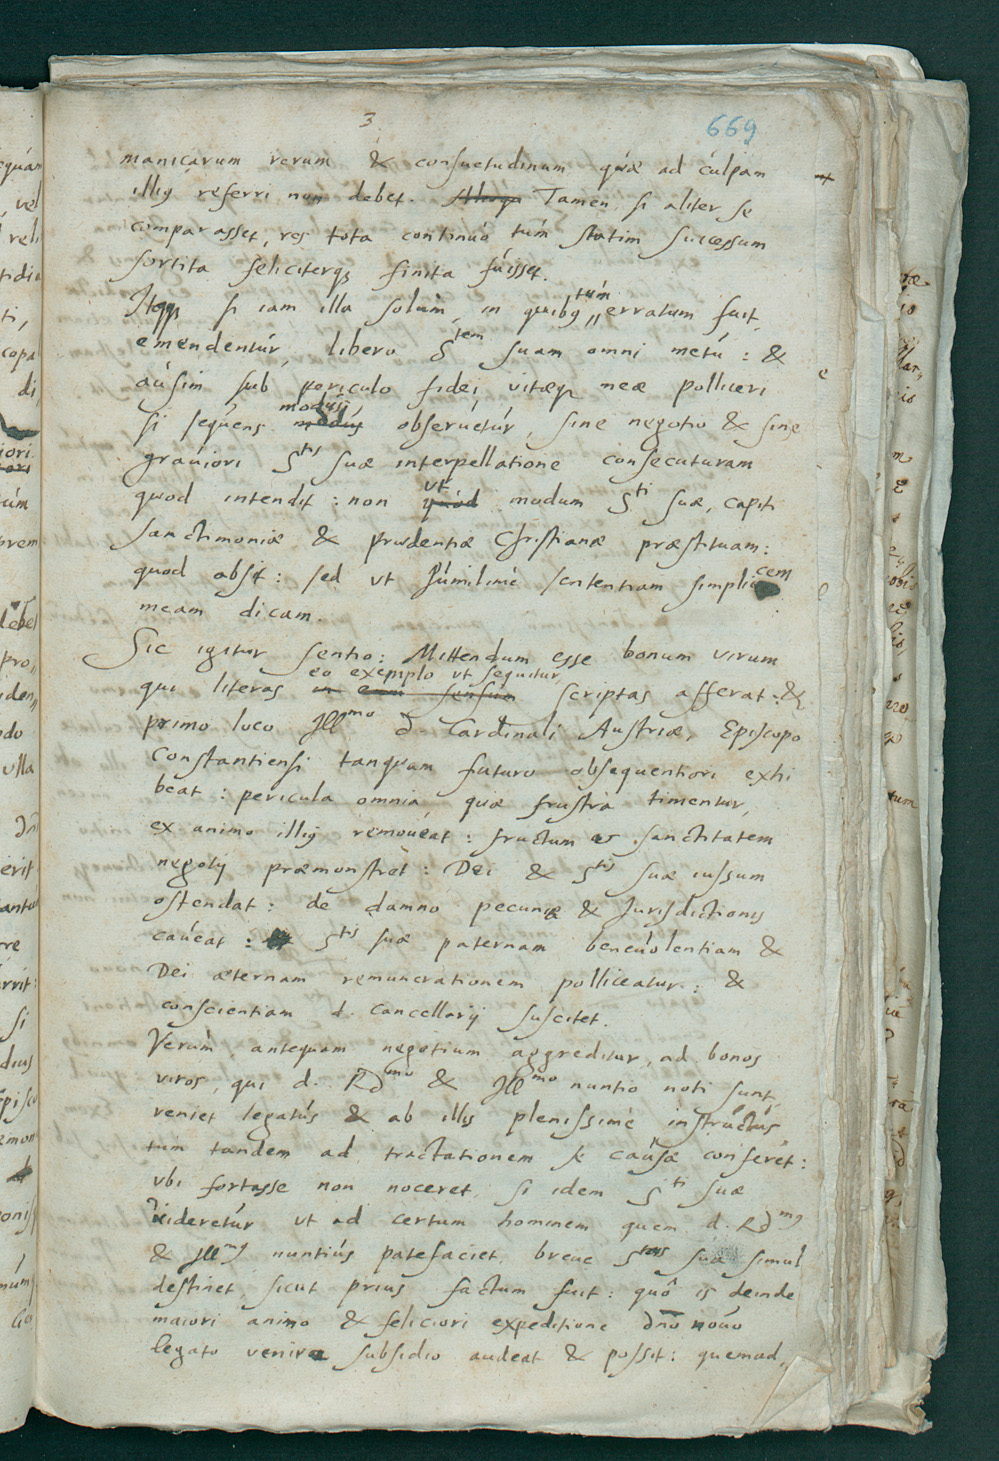 3
669
manicarum rerum & consuetudinum quæ ad culpam
illis referri non debet. Tamen si aliter se
comparasset, res tota continuò tùm statim successum
sortita feliciterq; finita fuisset.
Itaq; si iam illa solùm, in quibus tùm erratum fuit,
emendentur, libero Stem suam omni metu: &
ausim sub periculo fidei, vitæq; meæ polliceri
si sequens modus observetur, sine negotio & sine
graviori Stis suæ interpellatione consecuturam
quod intendit: non vt modum Sti suæ, capiti
sanctimoniæ & prudentiæ Christianæ præstituam:
quod absit: sed vt humilimè sententiam simplicem
meam dicam.
Sic igitur sentio: Mittendum esse bonum virum
eo exemplo vt sequitur
qui literas in eum sensum scriptas afferat: &
primo loco Illmo d. Cardinali Austriæ, Episcopo
Constantiensi tanquam futuro obsequentiori exhi
beat: pericula omnia, quæ frustra timentur,
ex animo illis removeat: fructum & sanctitatem
negotij præmonstret: Dei & Stis suæ iussum
ostendat: de damno pecuniæ & Jurisdictionis
caveat: Stis suæ paternam benevolentiam &
Dei æternam remunerationem polliceatur: &
conscientiam d. Cancellarij suscitet.
Verùm antequam negotium aggreditur, ad bonos
viros, qui d. Rdmo & Illmo nuntio noti sunt,
veniet legatus & ab illis plenissimè instructus
tum tandem ad tractationem se causæ conferet:
vbi fortasse non noceret, si idem Sti suæ
videretur vt ad certum hominem quem d. Rdmus
& Illmus nuntius patefaciet, breve Stas sua simul
destinet, sicut prius factum fuit: quô is deinde
maiori animo & feliciori expeditione dno novo
legato venire subsidio audeat & possit: quemad,